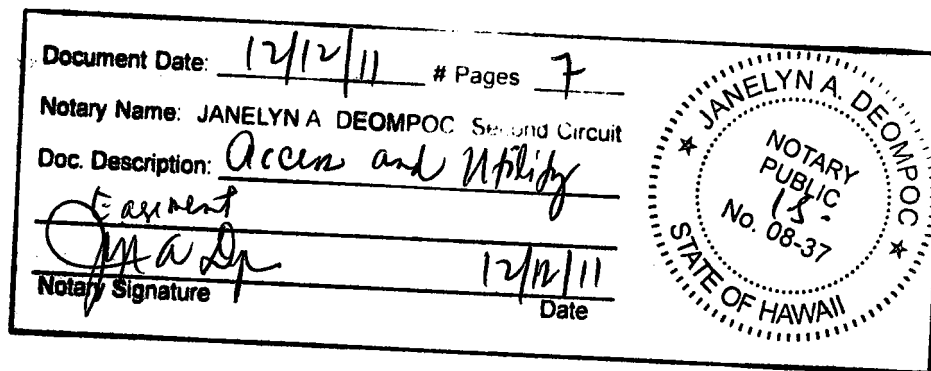 Document Date: 12/12/11 # Pages 7
Notary Name: JANELYN A DEOMPOC Second Circuit
Doc. Description: Access and Utility
Easement
12/12/11
Notary Signature Date
JANELYN A. DEOMPOC
NOTARY
PUBLIC
No. 08-37
STATE OF HAWAII